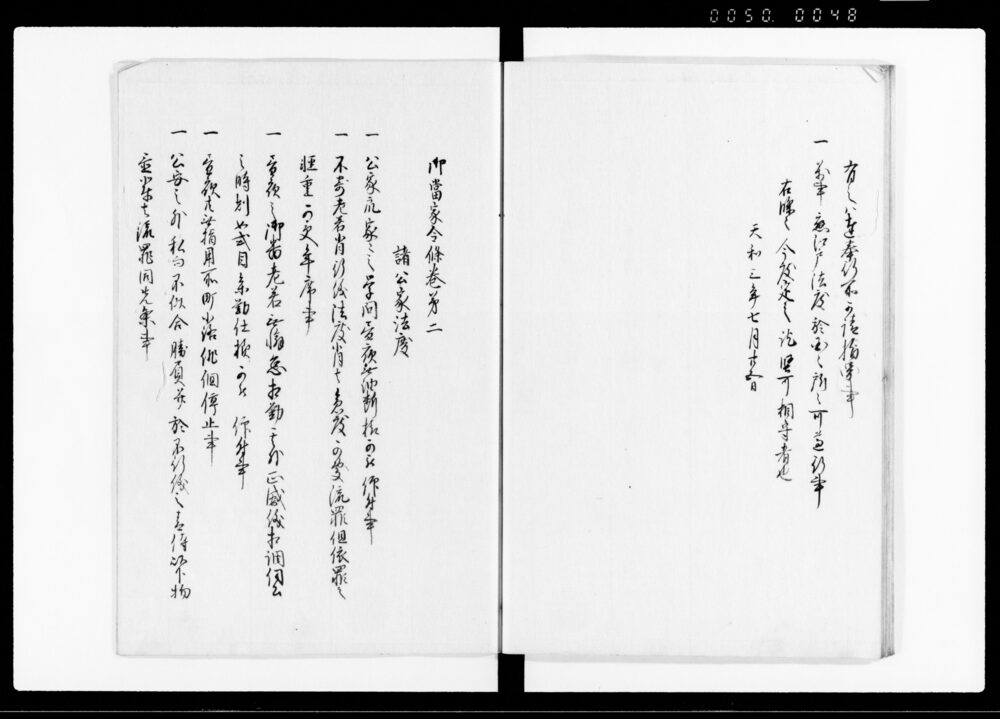 0050. 0048
有之、達奉行所可請指図事
一 万事應江戸法度於国々所々可遵行事
右條々今度定之訖堅可相守者也
天和三年七月廿五日
御當家令條巻第二
諸公家法度
一 公家衆家々之学問昼夜無油断様可被仰付事
一 不寄老若背行儀法度者ハ急度可処流罪但依罪之
軽重可定年序事
一 昼夜之御番老若無懈怠相勤其外正威儀相調伺公
之時刻如式目参勤仕様可被仰付事
一 昼夜共無指用所町小路徘徊停止事
一 公宴之外私而不似合勝負并於不行儀之青侍以下抱
置輩者流罪同先条事